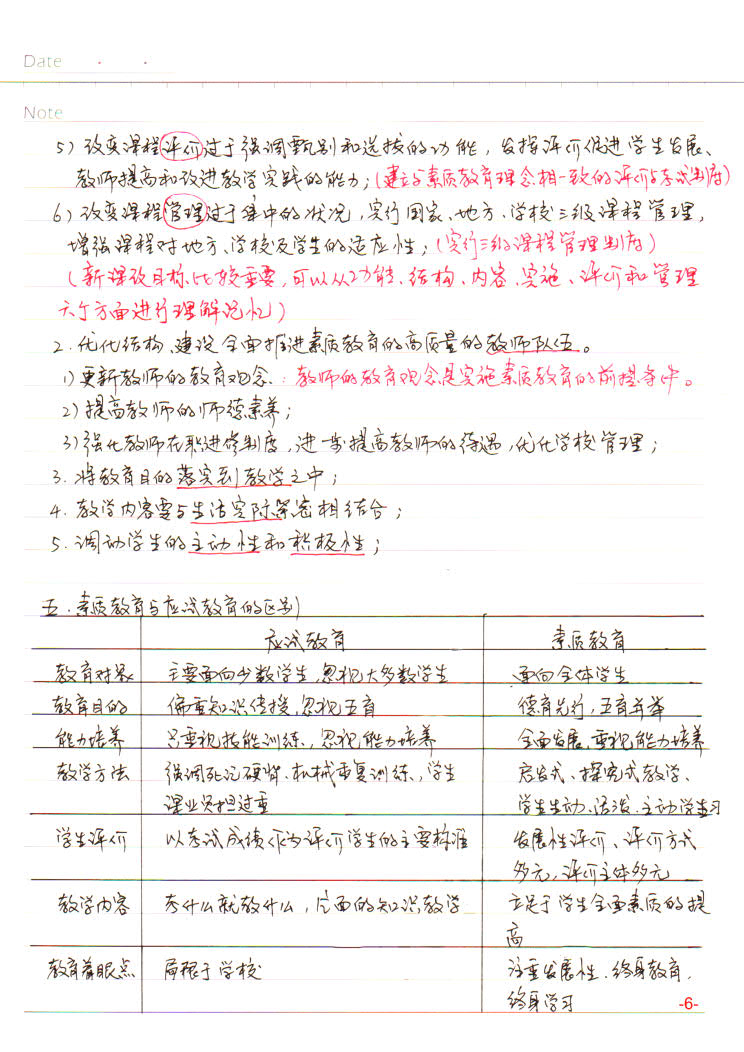 Date · ·
Note
5) 改变课程评价过于强调甄别和选拔的功能，发挥评价促进学生发展、
教师提高和改进教学实践的能力；(建立与素质教育理念相一致的评价与考试制度)
6) 改变课程管理过于集中的状况，实行国家、地方、学校三级课程管理，
增强课程对地方、学校及学生的适应性；(实行三级课程管理制度)
(新课改目标比较重要，可以从功能、结构、内容、实施、评价和管理
六个方面进行理解记忆)
2. 优化结构、建设全面推进素质教育的高质量的教师队伍。
1)更新教师的教育观念：教师的教育观念是实施素质教育的前提条件。
2)提高教师的师德素养；
3)强化教师在职进修制度，进一步提高教师的待遇，优化学校管理；
3. 将教育目的落实到教学之中；
4. 教学内容要与生活实际紧密相结合；
5. 调动学生的主动性和积极性；
五.素质教育与应试教育的区别
应试教育 素质教育
教育对象 主要面向少数学生,忽视大多数学生 面向全体学生
教育目的 偏重知识传授,忽视五育 德育先行,五育并举
能力培养 只重视技能训练、忽视能力培养 全面发展,重视能力培养
教学方法 强调死记硬背、机械重复训练、学生 启发式、探究式教学、
课业负担过重 学生生动、活泼、主动学习
学生评价 以考试成绩作为评价学生的主要标准 发展性评价、评价方式
多元,评价主体多元
教学内容 考什么就教什么，片面的知识教学 立足于学生全面素质的提
高
教育着眼点 局限于学校 注重发展性、终身教育、
终身学习
-6-